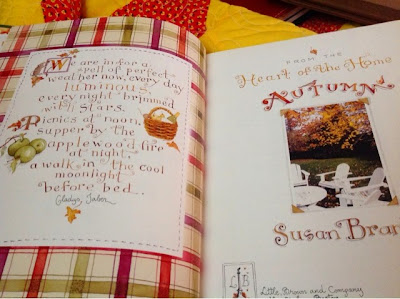 We are in for a
spell of perfect
weather now, every day
luminous,
every night brimmed
with stars.
Picnics at noon,
supper by the
applewood fire
at night,
a walk in the cool
moonlight
before bed...
Gladys Taber
FROM THE
Heart of the Home
AUTUMN
Susan Bran
Little, Brown and Company